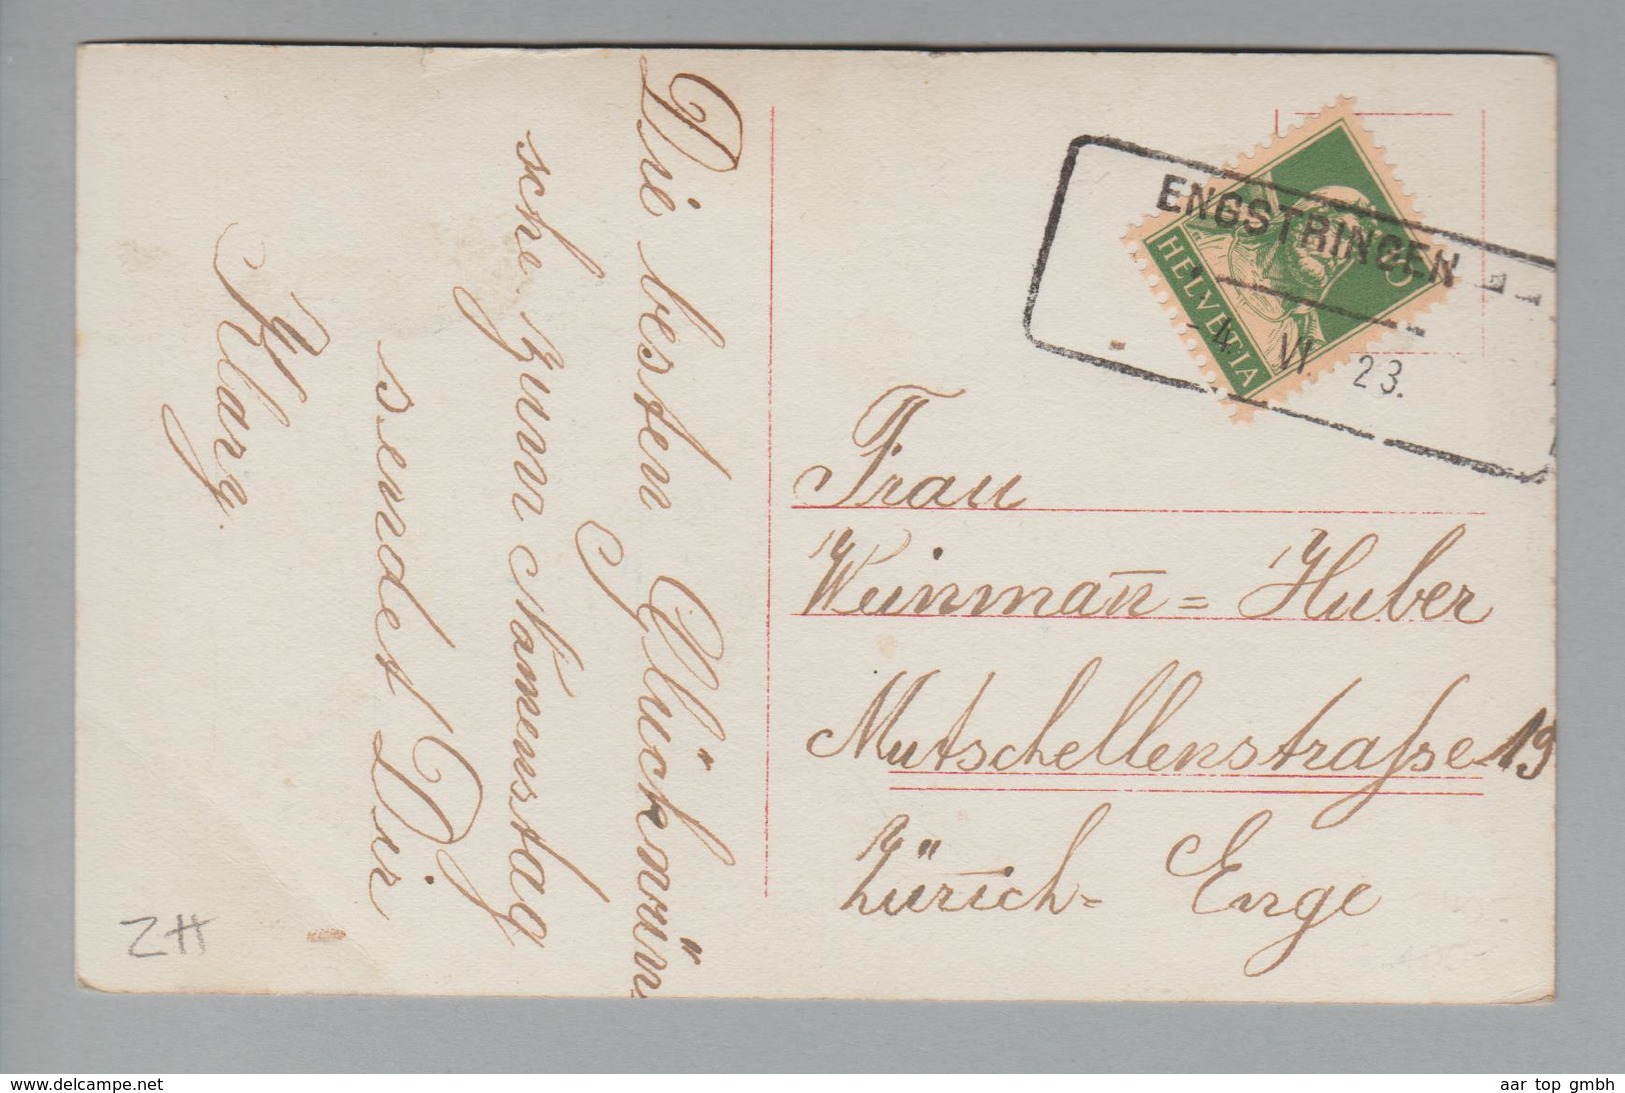 Die besten Glückwün
sche zum Namenstag
sendet Dir
Klara.
ENGSTRINGEN
-4. VI. 23.
HELVETIA
Frau
Weinman̅n̅ = Huber
Mutschellenstrasse 19
Zürich = Enge
ZH
www.delcampe.net
aar top gmbh